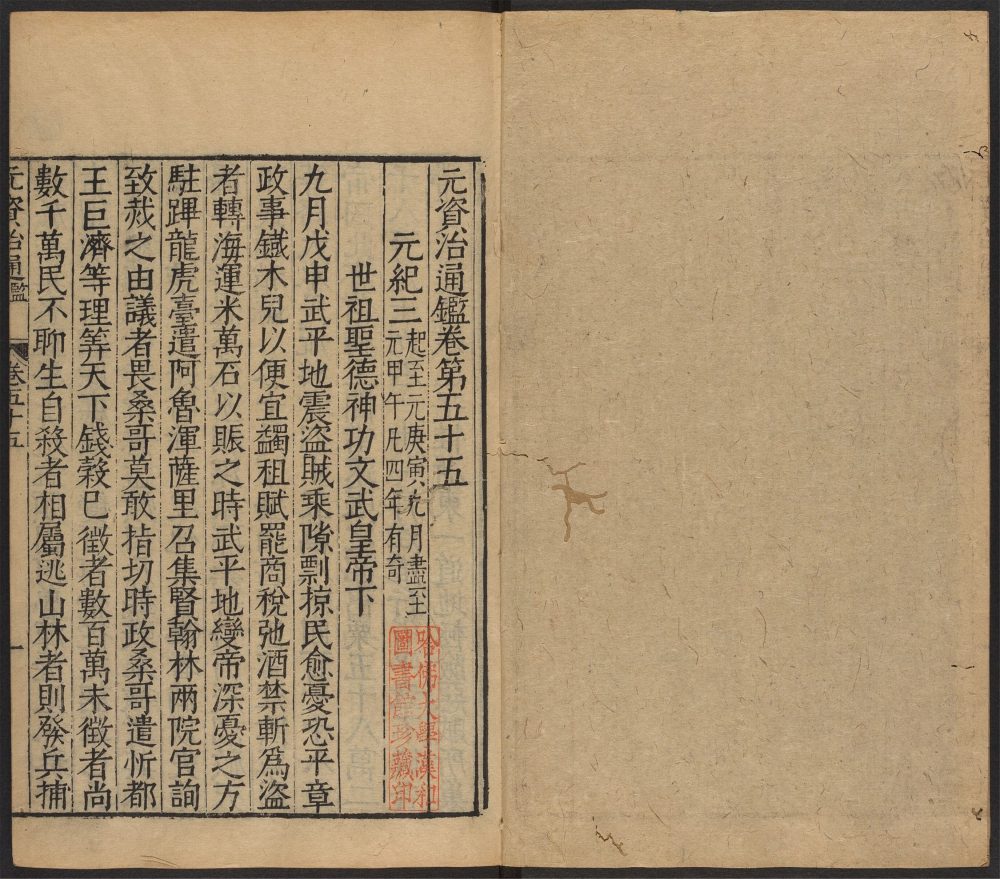 元資治通鑑卷第五十五
元紀三
起至元庚寅九月盡至
元甲午凡四年有奇
世祖聖德神功文武皇帝下
九月戊申武平地震盜賊乘隙剽掠民愈憂恐平章
政事鐵木兒以便宜蠲租賦罷商稅弛酒禁斬爲盜
者轉海運米萬石以賑之時武平地變帝深憂之方
駐蹕龍虎臺遣阿魯渾薩里召集賢翰林兩院官詢
致烖之由議者畏桑哥莫敢指切時政桑哥遣忻都
王巨濟等理筭天下錢穀已徵者數百萬未徵者尚
數千萬民不聊生自殺者相屬逃山林者則發兵捕
元資治通鑑
卷五十五
一
哈佛大學漢和
圖書館珍藏印